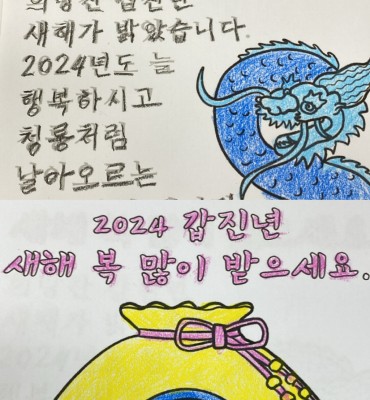 갑진년
새해가 밝았습니다.
2024년도 늘
행복하시고
청룡처럼
날아오르는
2024 갑진년
새해 복 많이 받으세요.